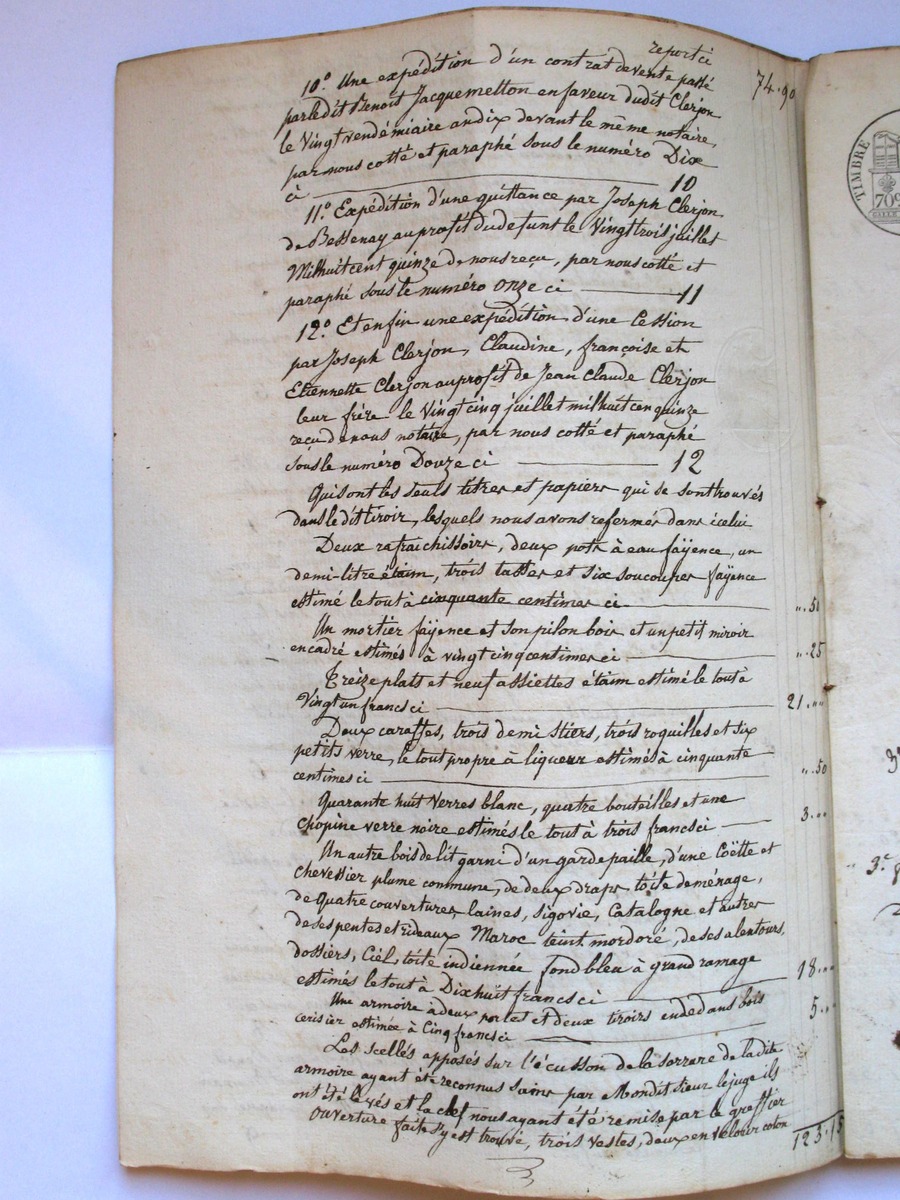 report ci 74.90
10.° Une expédition d'un contrat de vente passé
par ledit Benoit Jacquemetton en faveur dudit Clerjon
le Vingt vendémiaire an dix devant le même notaire,
par nous cotté et paraphé sous le numéro Dix
ci 10
11.° Expédition d'une quittance par Joseph Clerjon
de Bessenay au profit du defunt le Vingt trois juillet
Mil huit cent quinze de nous reçu, par nous cotté et
paraphé sous le numéro onze ci 11
12.° Et enfin une expédition d'une Cession
par Joseph Clerjon, Claudine, françoise et
Etiennette Clerjon au profit de Jean Claude Clerjon
leur frère le Vingt cinq juillet mil huit cen quinze
reçu de nous notaire, par nous cotté et paraphé
sous le numéro Douze ci 12
Qui sont les seuls titres et papiers qui se sont trouvés
dans le dit tiroir, lesquels nous avons refermés dans icelui
Deux rafraichissoirs, deux pots à eau fayence, un
demi-litre étaim, trois tasses et six soucoupes fayence
estimé le tout à cinquante centimes ci ".50
Un mortier fayence et son pilon bois et un petit miroir
encadré estimés à vingt cinq centimes ci ".25
Treize plats et neuf assiettes étaim estimé le tout à
Vingt un francs ci 21."
Deux caraffes, trois demi stiers, trois roquilles et six
petits verre, le tout propre à liqueur estimés à cinquante
centimes ci ".50
Quarante huit Verres blanc, quatre bouteilles et une
chopine verre noire estimés le tout à trois francs ci 3."
Un autre bois de lit garni d'un garde paille, d'une Coëtte et
chevessier plume commune, de deux draps toile de ménage,
de quatre couvertures laines, Sigovie, Catalogne et autres
de ses pentes et rideaux Maroc teint mordoré, de ses alentours,
dossiers, Ciel, toile indiennée fond bleu à grand ramage
estimés le tout à Dix huit francs ci 18."
Une armoire à deux portes et deux tiroirs en dedans bois
cerisier estimée à Cinq francs ci 5."
Les scellés apposés sur l'écusson de la serrure de la dite
armoire ayant été reconnus sains par Mondit sieur le juge ils
ont été levés et la clef nous ayant été remise par le greffier
ouverture faite s'y est trouvé, trois vestes, deux en velour coton
123.15
TIMBRE
70c